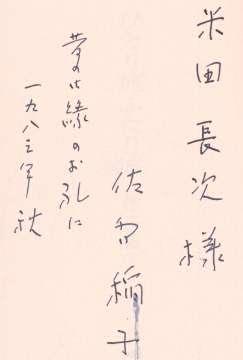 米田長次様
佐多稲子
夢の縁のお礼に
一九八三年秋